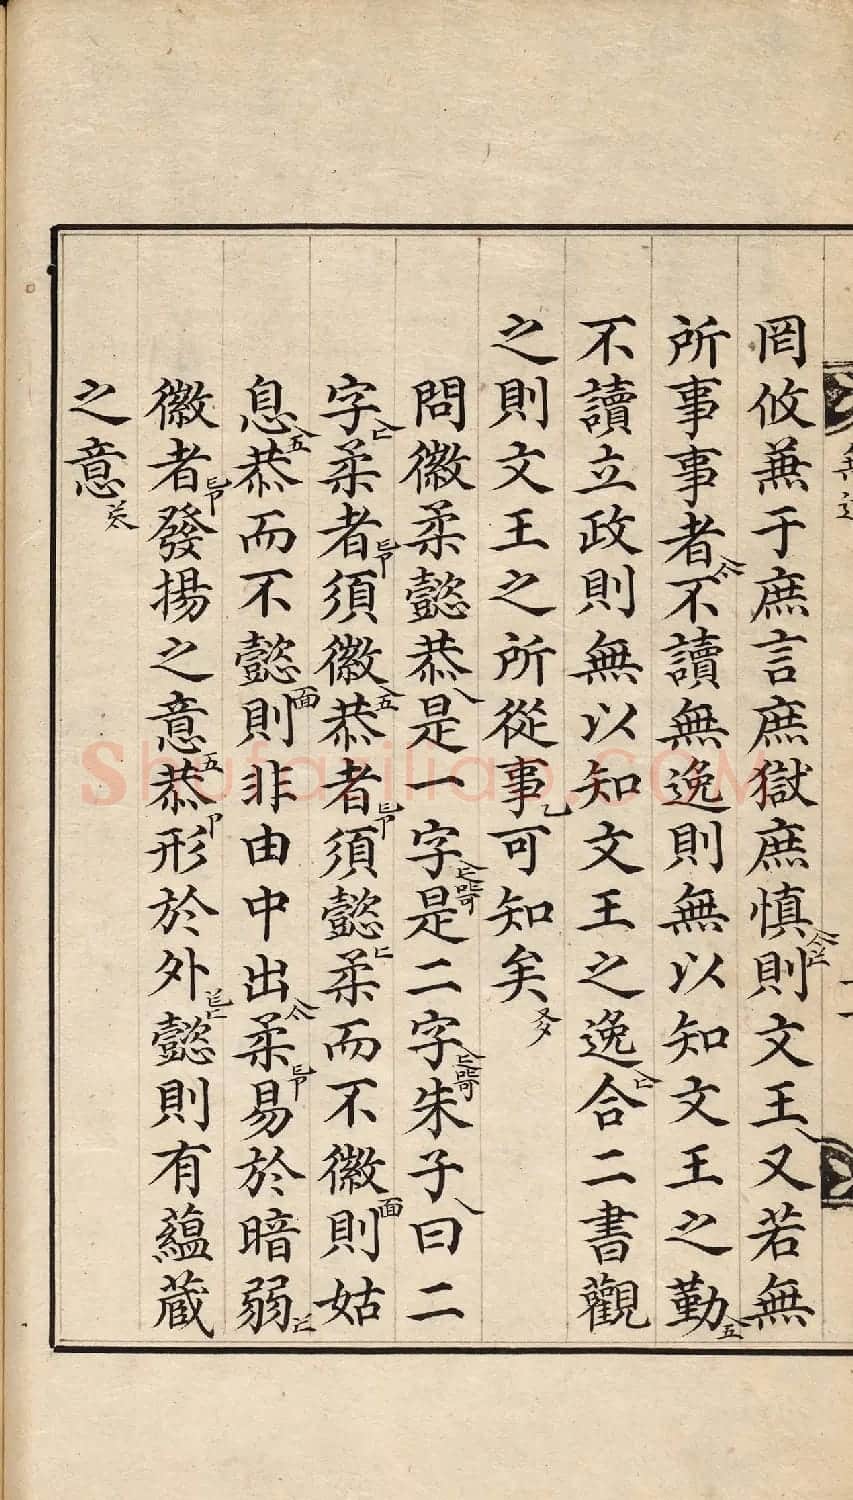 罔攸兼于庶言庶獄庶慎則文王又若無
所事事者不讀無逸則無以知文王之勤
不讀立政則無以知文王之逸合二書觀
之則文王之所從事可知矣
問徽柔懿恭是一字是二字朱子曰二
字柔者須徽恭者須懿柔而不徽則姑
息恭而不懿則非由中出柔易於暗弱
徽者發揚之意恭形於外懿則有蘊蔵
之意
Shufaziliao.COM